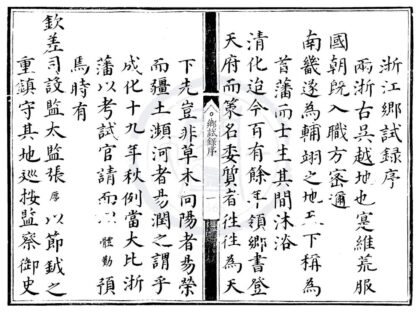 浙江鄉試錄序
兩浙古吳越地也寔維荒服
國朝既入職方密邇
南畿遂為輔翊之地天下稱為
首藩而士生其間沐浴
清化迨今百有餘年領鄉書登
天府而策名委質者往往為天
鄉試錄序
一
下先豈非草木向陽者易榮
而疆土瀕河者易潤之謂乎
成化十九年秋例當大比浙
藩以考試官請而以體勤預
焉時有
欽差司設監太監張以節鉞之
重鎮守其地巡按監察御史